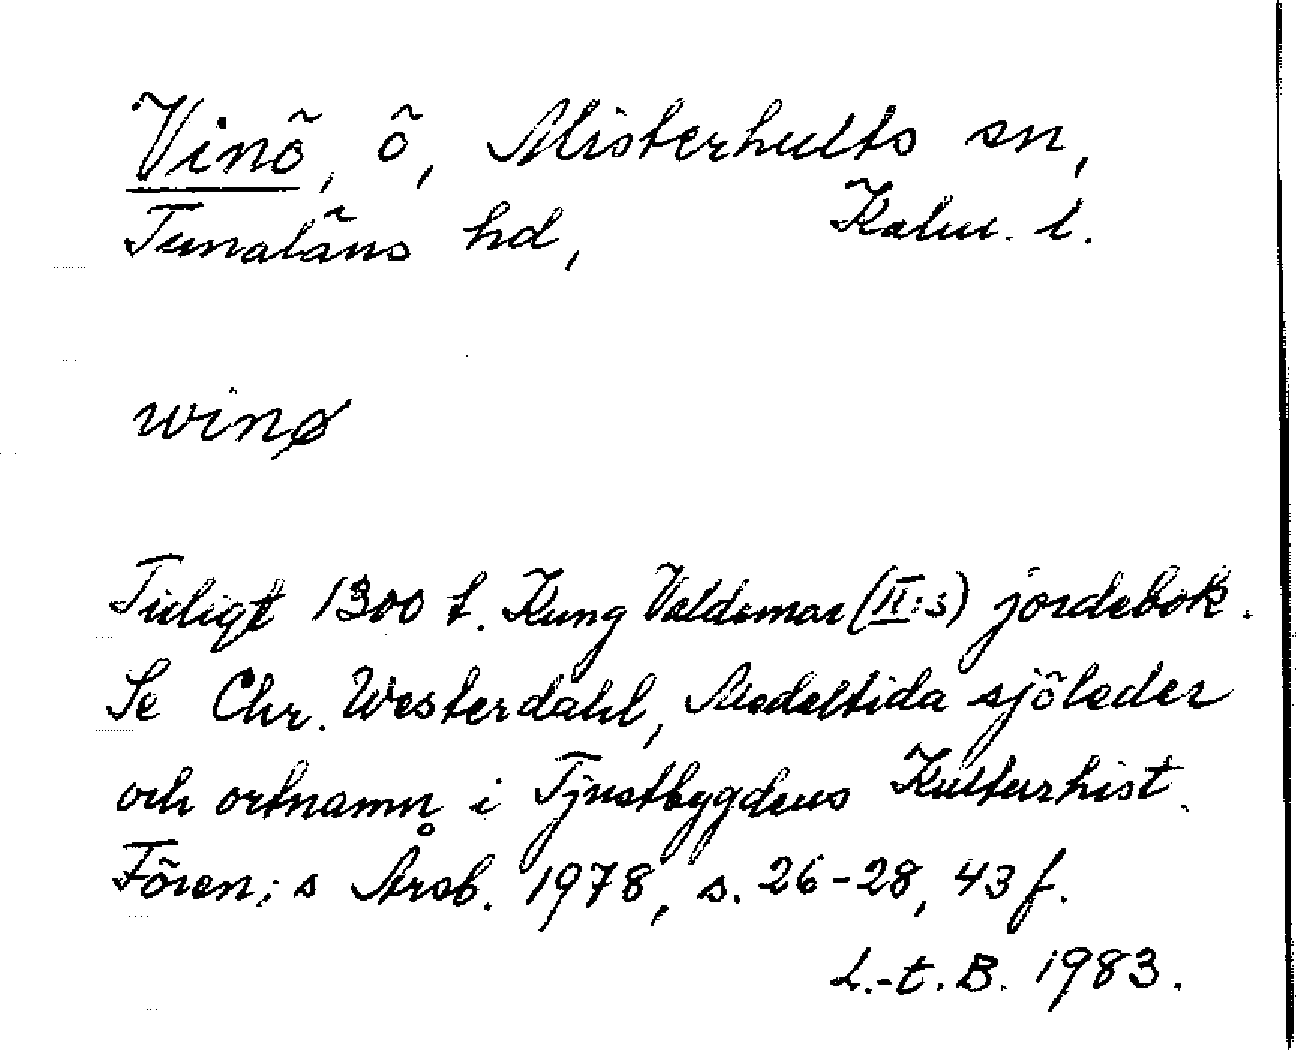 Vinö, ö, Misterhults sn,
Tunaläns hd, Kalm. l.
winø
Tidigt 1300 t. Kung Valdemar (II:s) jordebok.
Se Chr. Westerdahl, Medeltida sjöleder
och ortnamn i Tjustbygdens Kulturhist.
Fören:s Årsb. 1978, s. 26-28, 43 f.
L.-t. B. 1983.